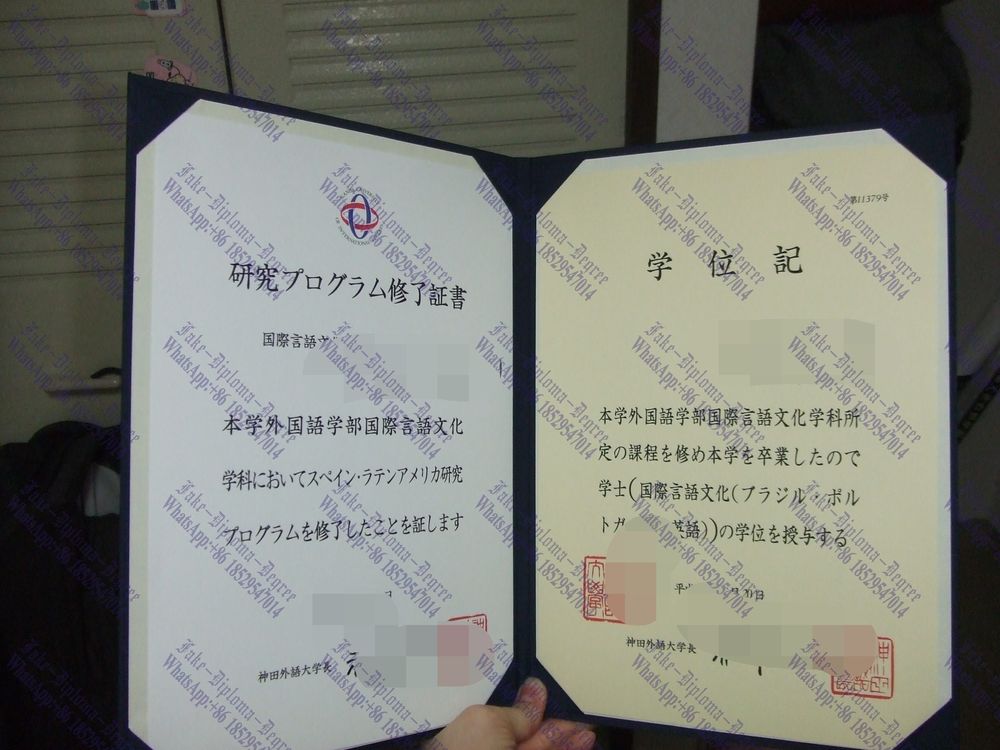 研究プログラム修了証書
国際言語文
本学外国語学部国際言語文化
学科においてスペイン・ラテンアメリカ研究
プログラムを修了したことを証します
神田外語大学長
第11379号
学位記
本学外国語学部国際言語文化学科所
定の課程を修め本学を卒業したので
学士(国際言語文化(ブラジル・ポル
トガ 英語))の学位を授与する
20日
神田外語大学長
Fake-Diploma-Degree
WhatsApp:+86 18529547014